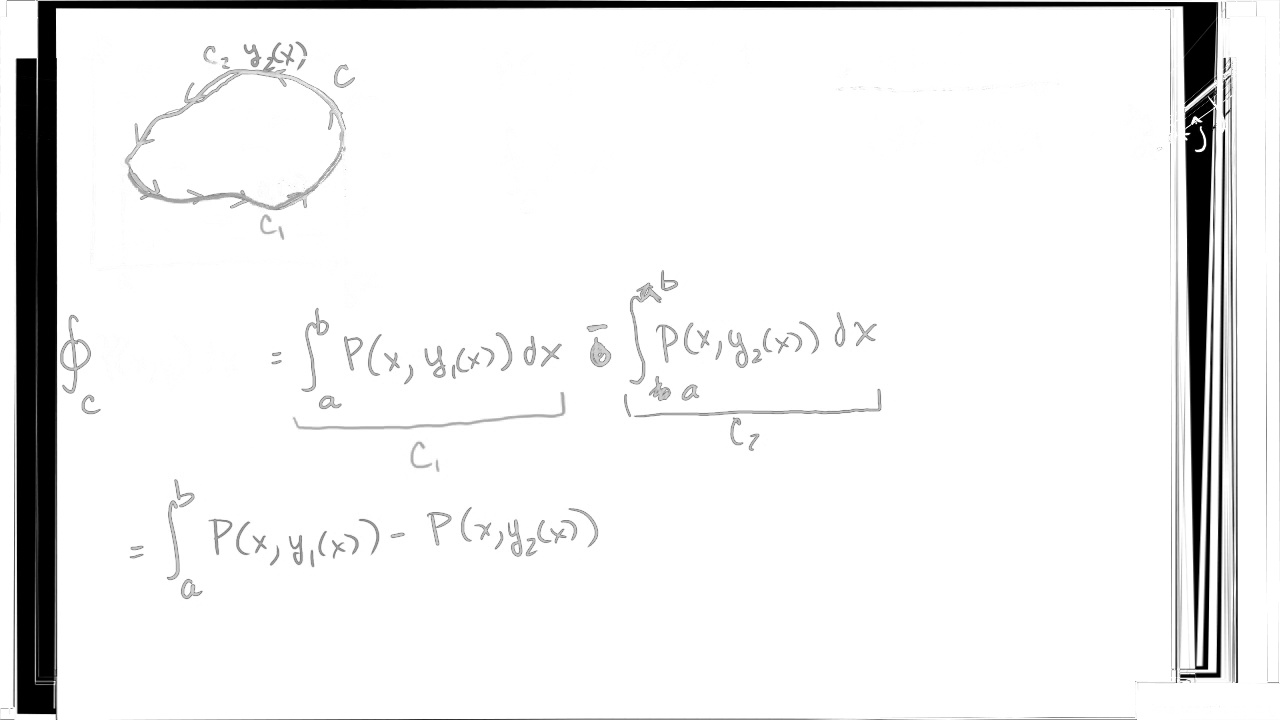 C₂ y₂(x) C
C₁
∮_C = ∫_a^b P(x, y₁(x)) dx - ∫_a^b P(x, y₂(x)) dx
C₁ C₂
= ∫_a^b P(x, y₁(x)) - P(x, y₂(x))